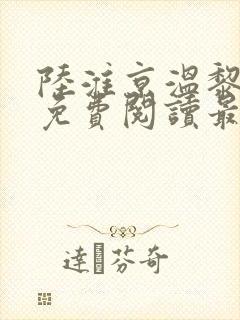 陸淮京溫黎
免費閱讀最
達芬奇